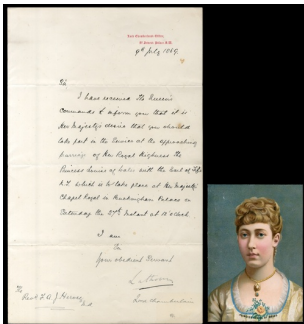 Lord Chamberlain's Office,
St. James's Palace, S.W.
9th July 1889.
Sir,
I have received The Queen's
Commands to inform you that it is
Her Majesty's desire that you should
take part in the Service at the approaching
marriage of Her Royal Highness the
Princess Louise of Wales with the Earl of Fife
K.T. which is to take place at Her Majesty's
Chapel Royal in Buckingham Palace on
Saturday the 27th Instant at o'clock
I am
Sir
Your obedient Servant
Lathom
Lord Chamberlain
The
Revd. F. A. J. Hervey